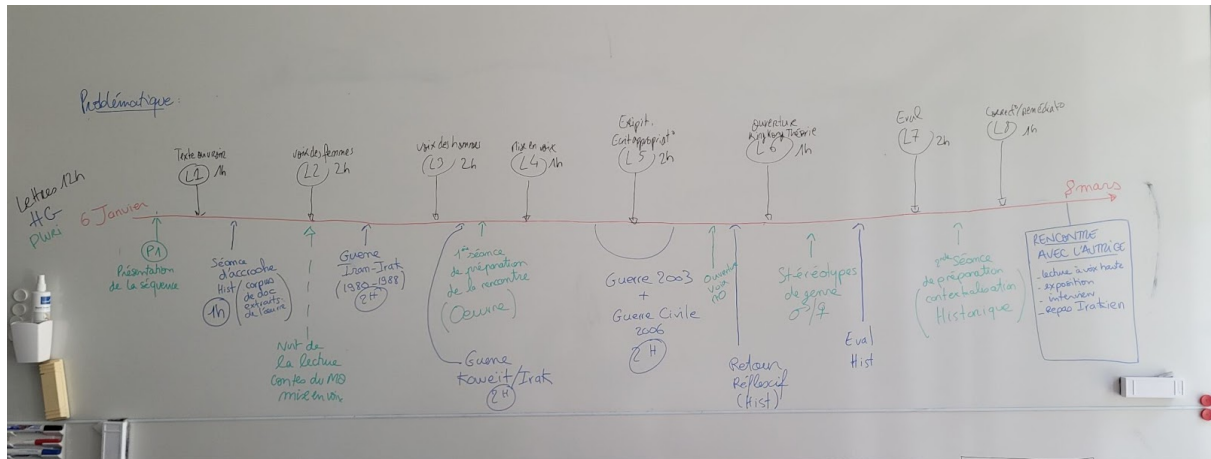 Problématique:
Lettres 12h
HG
Pluri
6 Janvier
Texte ouvroir
L1 1h
voix des femmes
L2 2h
voix des hommes
L3 2h
Mise en voix
L4 1h
Exipit.
Ecrit appropriat°
L5 2h
ouverture
King Kong Théorie
L6 1h
Eval
L7 2h
Correct°/remédiat°
L8 1h
8 mars
P1
Présentation
de la séquence
Séance
d'accroche
Hist (corpus
de doc
extraits
de l'œuvre)
1h
Nuit de
la lecture
contes du MO
mise en voix
Guerre
Iran-Irak
(1980-1988)
2H
1ère séance
de préparation
de la rencontre
(Oeuvre)
Guerre
Koweït/Irak
2H
Guerre 2003
+
Guerre Civile
2006
2H
Ouverture
voix MO
Retour
Réflexif
(Hist)
Stéréotypes
de genre
♂/♀
Eval
Hist
2nde Séance
de préparation
contextualisation
(Historique)
RENCONTRE
AVEC L'AUTRICE
- lecture à voix haute
- exposition
- interview
- repas Irakien